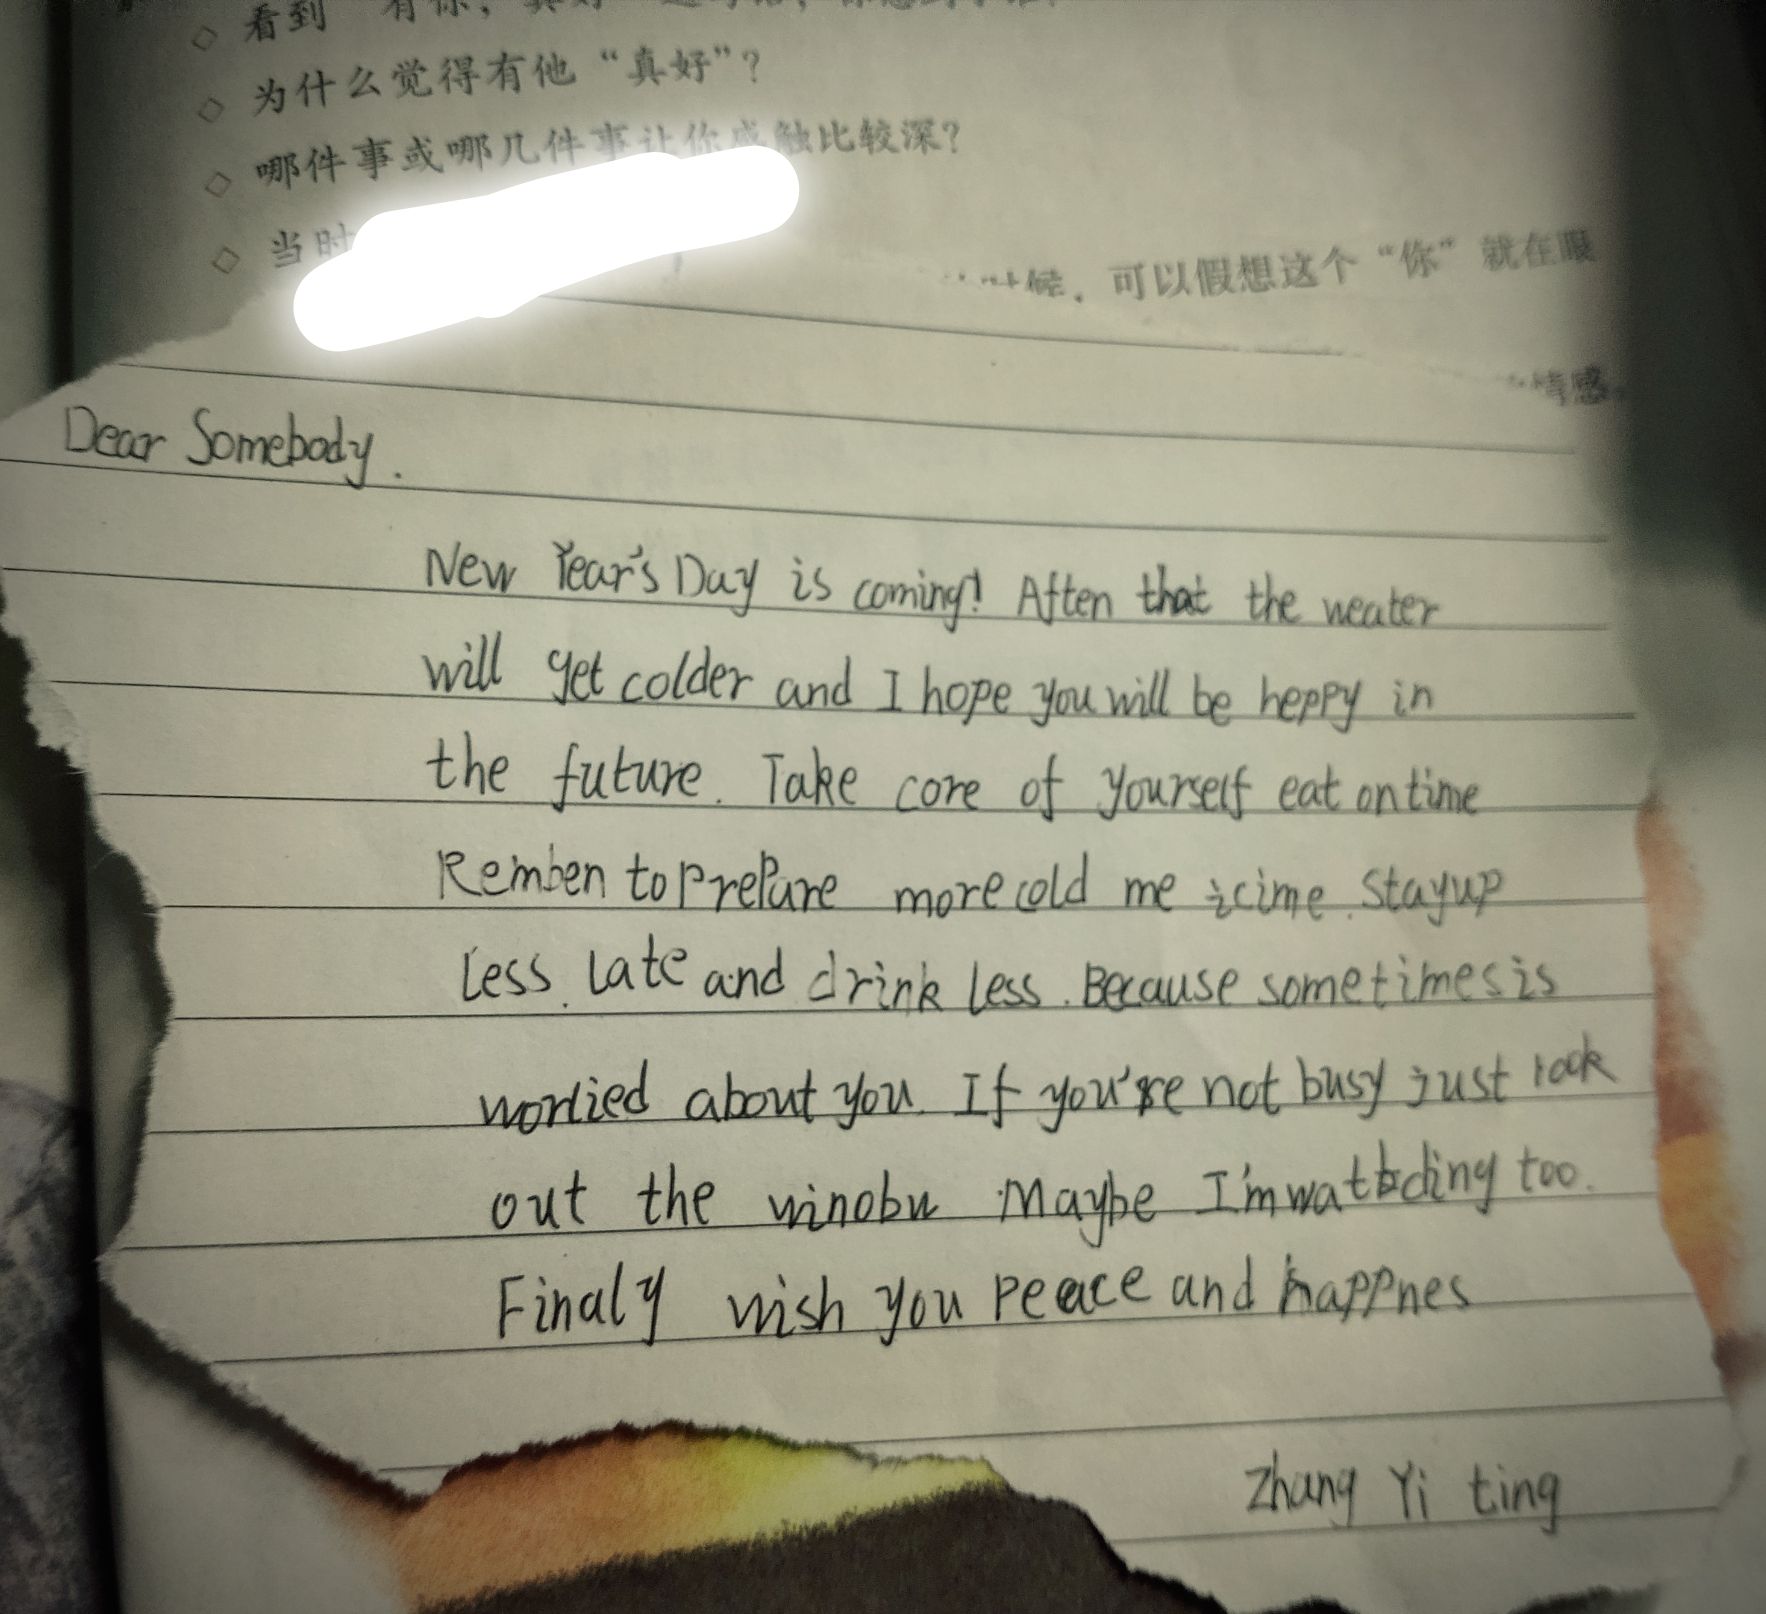 ◇ 看到“有你，真好”这句话，你想到了谁？
◇ 为什么觉得有他“真好”？
◇ 哪件事或哪几件事让你感触比较深？
◇ 当时
时候，可以假想这个“你”就在眼
情感
Dear Somebody.
New Year's Day is coming! Aften that the weater
will get colder and I hope you will be heppy in
the future. Take core of yourself eat on time
Remben to prepare more cold me icime. Stay up
Less. Late and drink less. Because sometimes is
worlied about you. If you're not busy just look
out the winobw Maybe I'm watbching too.
Finaly wish you peace and happnes
Zhang Yi ting